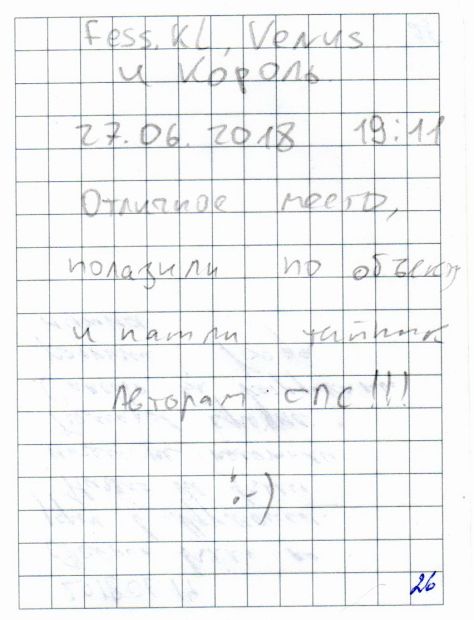 Fess.KL, Venus
и Король
27.06.2018 19:11
Отличное место,
полазили по объекту
и нашли тайник
Авторам спс!!!
:-)
26